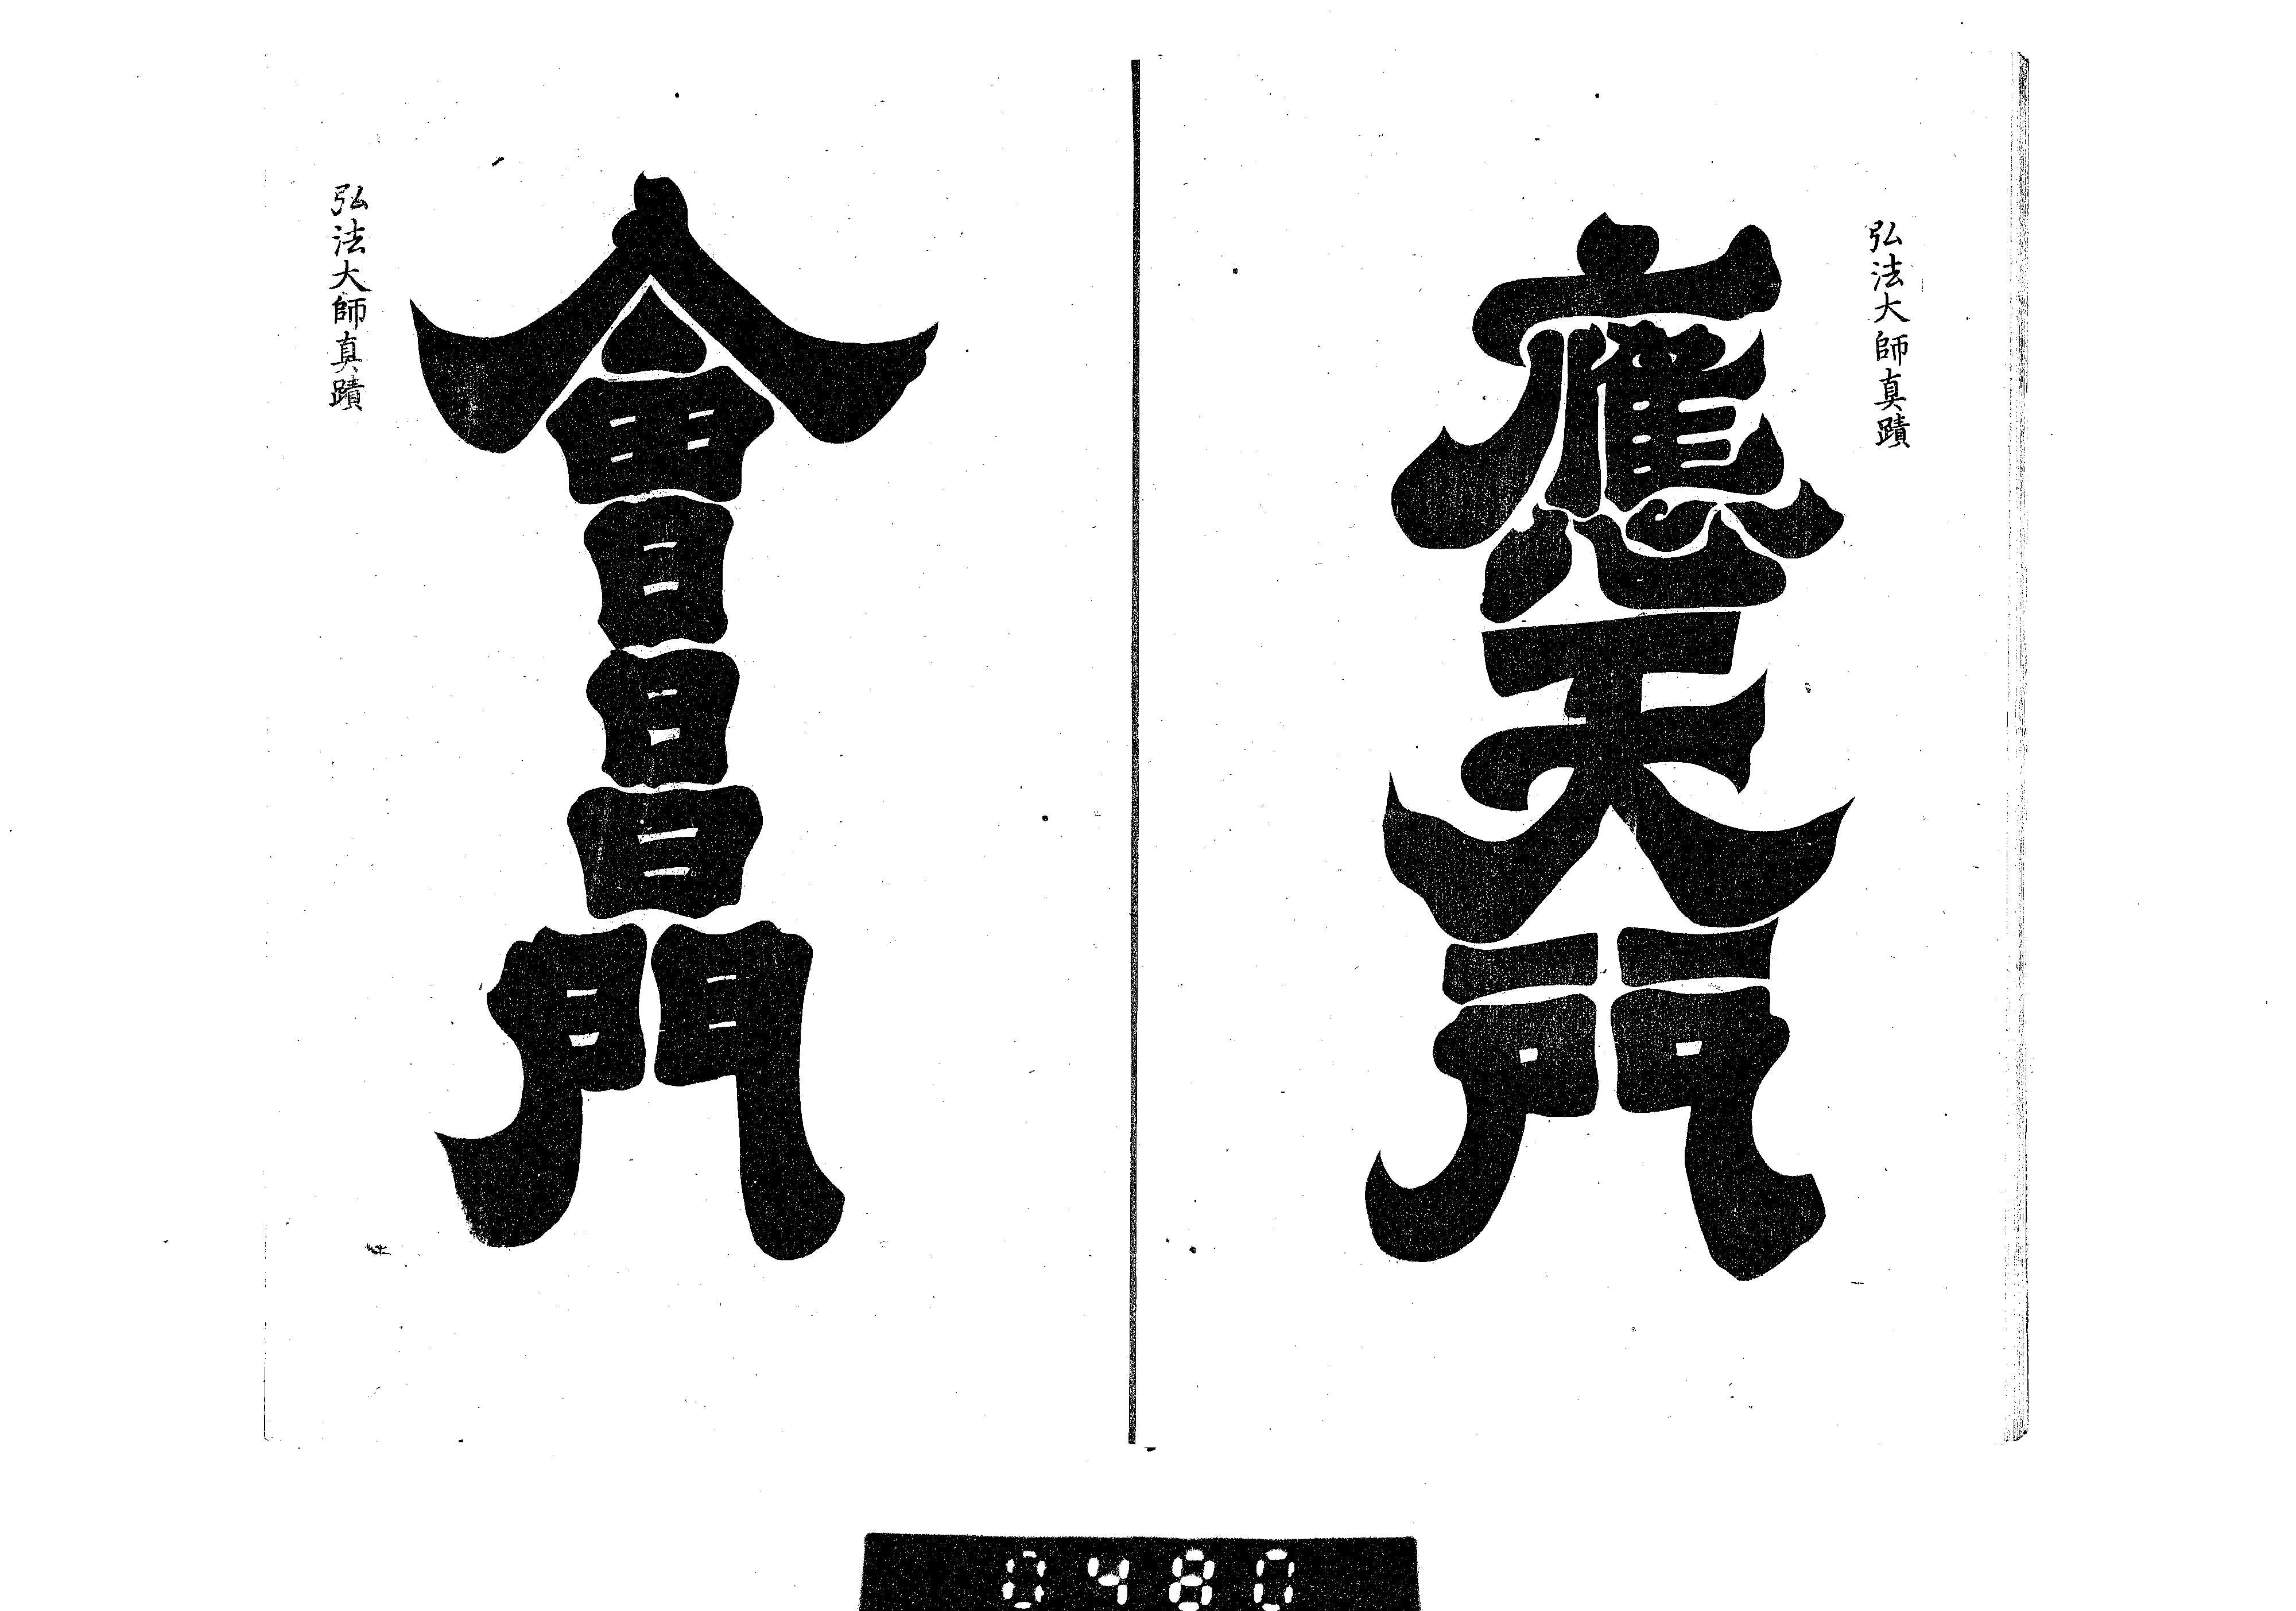 弘法大師真蹟
應天門
會昌門
弘法大師真蹟
0480